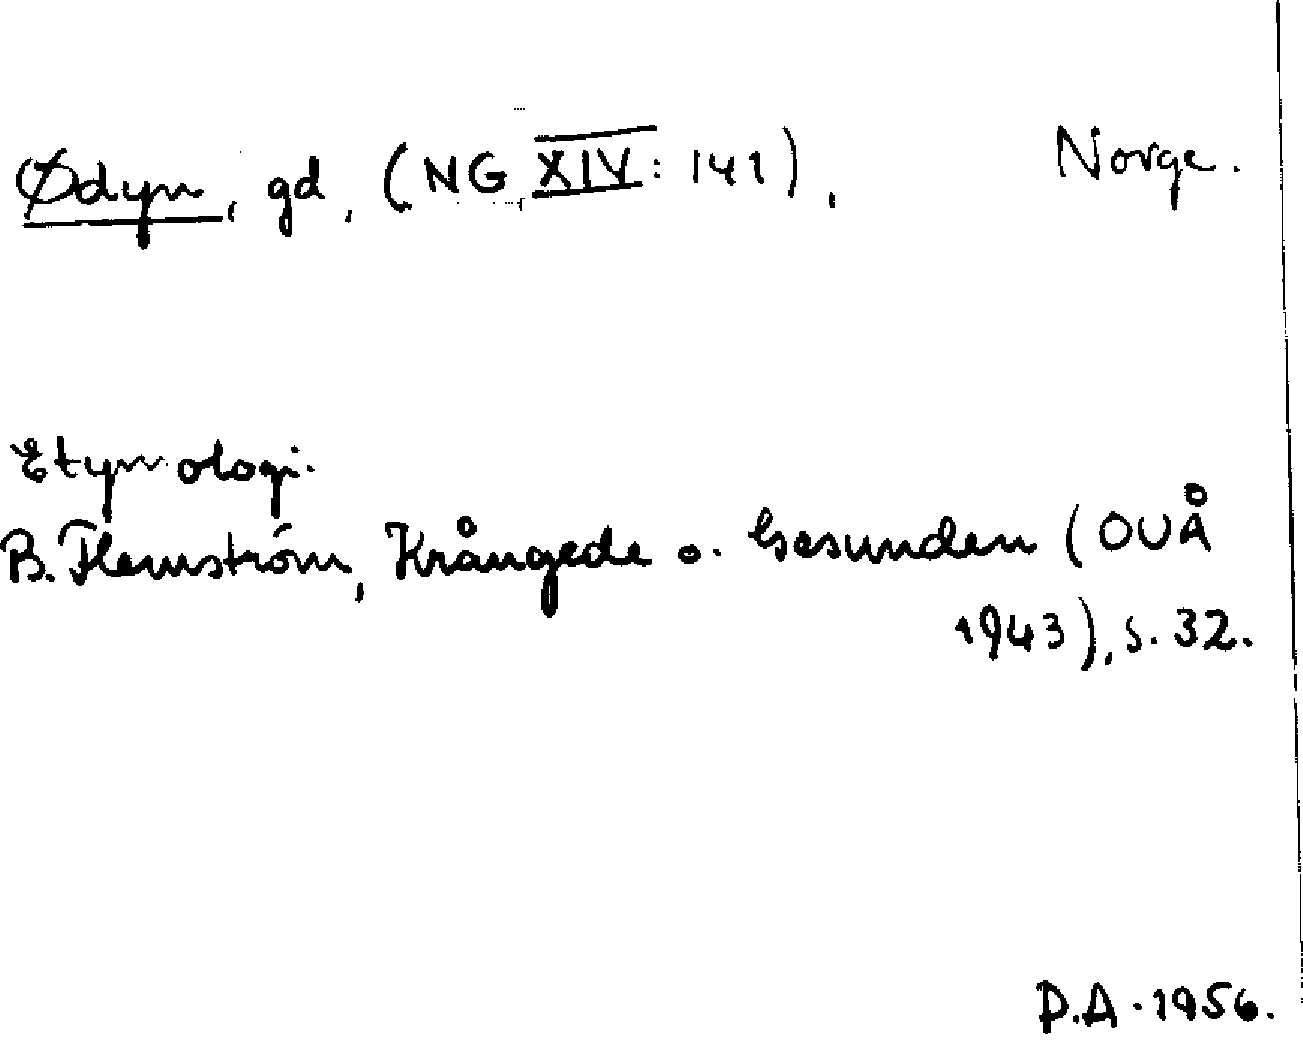 Ødyn, gd, (NG XIV: 141), Norge.
Etymologi.
B. Flemström, Krångede o. Gesunden (OUÅ
1943), s. 32.
P.A. 1956.